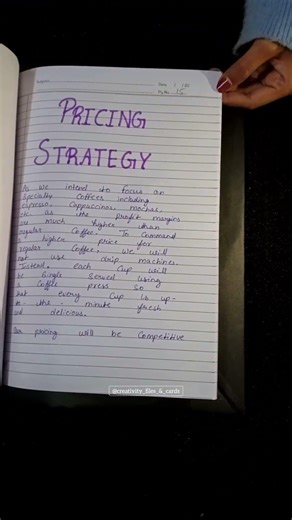 Date
15
PRICING
STRATEGY
As we intend to focus on
specialty coffees including
espresso, cappuccinos, mochas,
etc. as the profit margins
are much higher than
regular coffee. To command
higher price for
regular coffee, we will
not use drip machines.
Instead, each cup will
be single served using
a coffee press so
that every cup is up-
to-the-minute fresh
and delicious.
Our pricing will be competitive
@creativity_files_&_cards